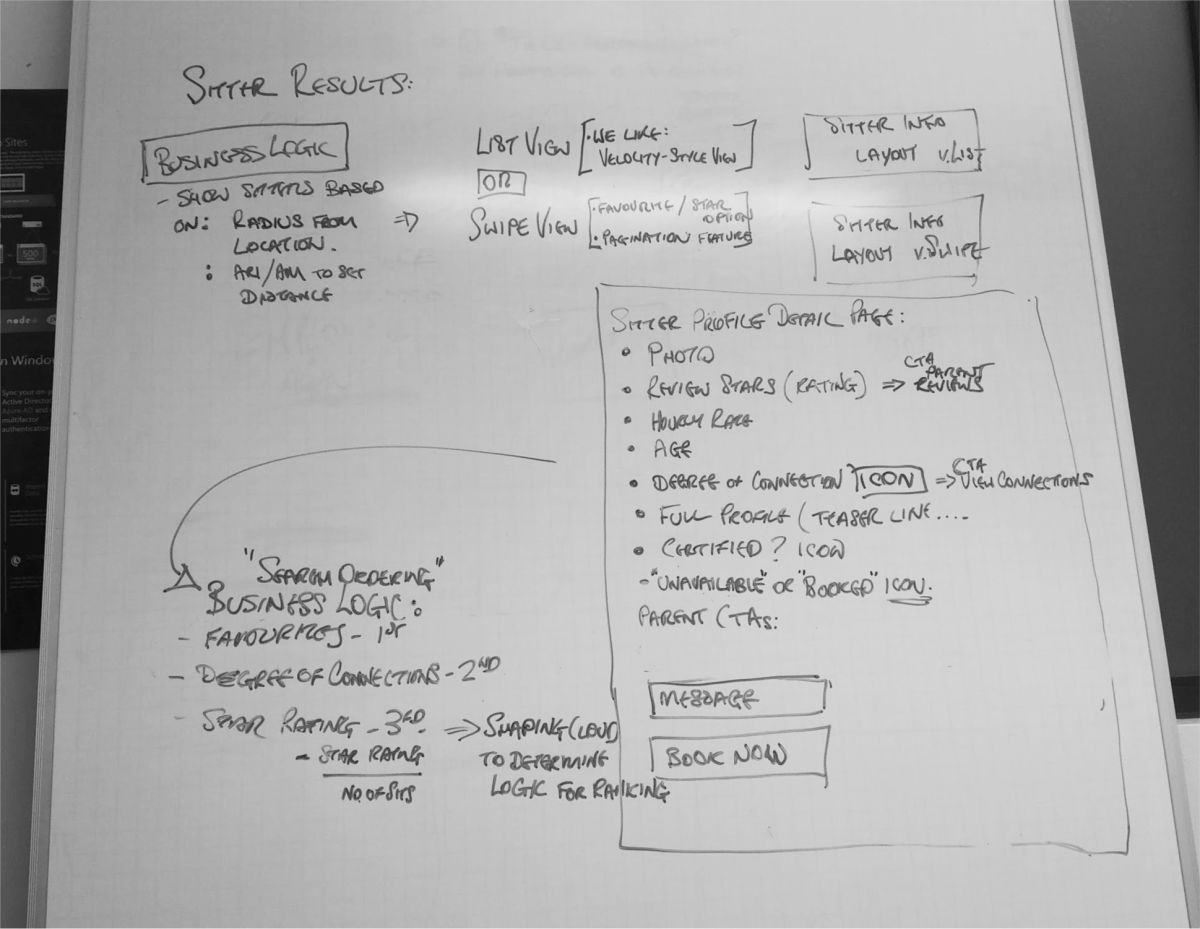 SITTER RESULTS:
BUSINESS LOGIC
- SHOW SITTERS BASED
ON: RADIUS FROM
LOCATION.
: ARI/AM TO SET
DISTANCE
⇒
LIST VIEW
OR
SWIPE VIEW
• WE LIKE:
VELOCITY-STYLE VIEW
• FAVOURITE / STAR
OPTION
• PAGINATION FEATURE
SITTER INFO
LAYOUT V.LIST
SITTER INFO
LAYOUT V.SWIPE
SITTER PROFILE DETAIL PAGE:
• PHOTO
• REVIEW STARS (RATING) ⇒ CTA
PARENT
REVIEWS
• HOURLY RATE
• AGE
• DEGREE OF CONNECTION ICON ⇒ CTA
VIEW CONNECTIONS
• FULL PROFILE (TEASER LINE....
• CERTIFIED? ICON
- "UNAVAILABLE" OR "BOOKED" ICON.
PARENT CTAs:
MESSAGE
BOOK NOW
"SEARCH ORDERING"
BUSINESS LOGIC:
- FAVOURITES - 1ST
- DEGREE OF CONNECTIONS - 2ND
- STAR RATING - 3RD. ⇒ SHAPING CLOUD
TO DETERMINE
LOGIC FOR RANKING
- STAR RATING
NO. OF SITS
Sites
500
SQL
node
n Window
Sync your on-p
Active Director
Azure AD and
multifactor
authentication